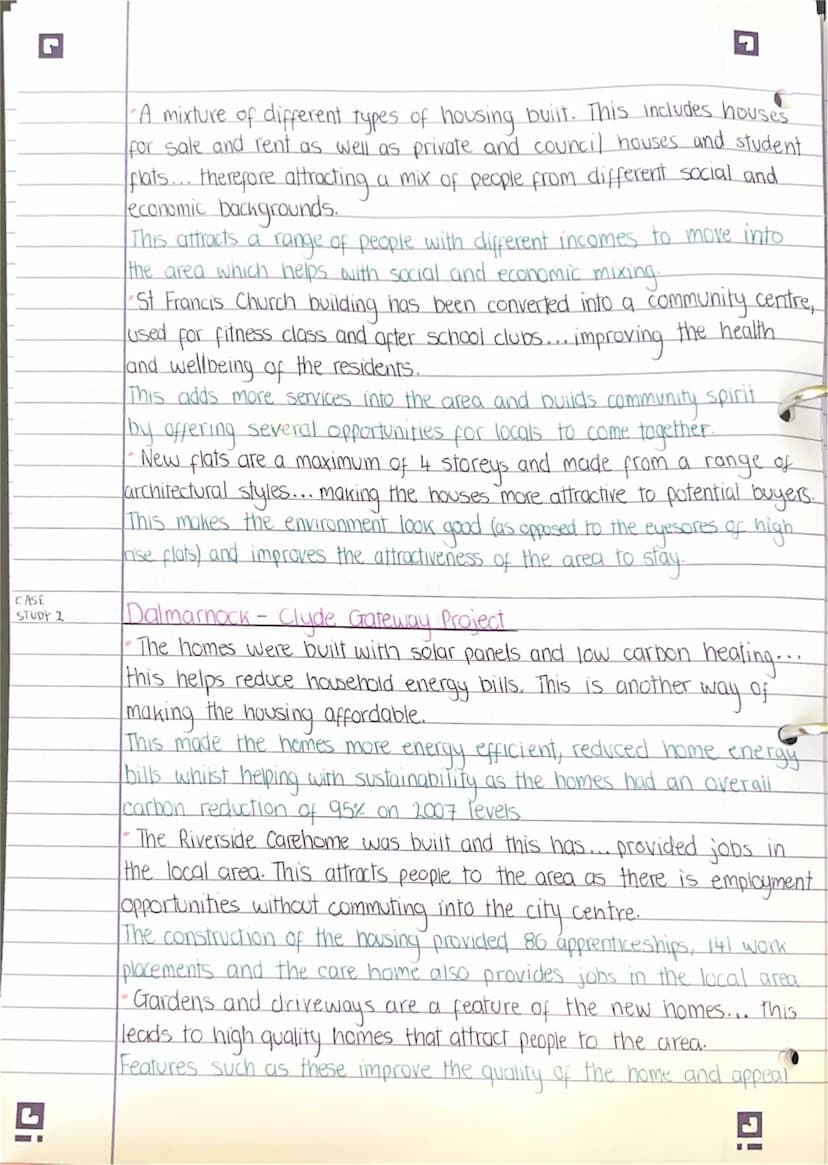 • A mixture of different types of housing built. This includes houses
for sale and rent as well as private and council houses and student
flats... therefore attracting a mix of people from different social and
economic backgrounds.
This attracts a range of people with different incomes to move into
the area which helps with social and economic mixing.
• St Francis Church building has been converted into a community centre,
used for fitness class and after school clubs... improving the health
and wellbeing of the residents.
This adds more services into the area and builds community spirit
by offering several opportunities for locals to come together.
• New flats are a maximum of 4 storeys and made from a range of
architectural styles... making the houses more attractive to potential buyers.
This makes the environment look good (as opposed to the eyesores of high
rise flats) and improves the attractiveness of the area to stay.
CASE
STUDY 2
Dalmarnock - Clyde Gateway Project
• The homes were built with solar panels and low carbon heating...
this helps reduce household energy bills. This is another way of
making the housing affordable.
This made the homes more energy efficient, reduced home energy
bills whilst helping with sustainability as the homes had an overall
carbon reduction of 95% on 2007 levels
• The Riverside Carehome was built and this has... provided jobs in
the local area. This attracts people to the area as there is employment
opportunities without commuting into the city centre.
The construction of the housing provided 86 apprenticeships, 141 work
placements and the care home also provides jobs in the local area
• Gardens and driveways are a feature of the new homes... this
leads to high quality homes that attract people to the area.
Features such as these improve the quality of the home and appeal